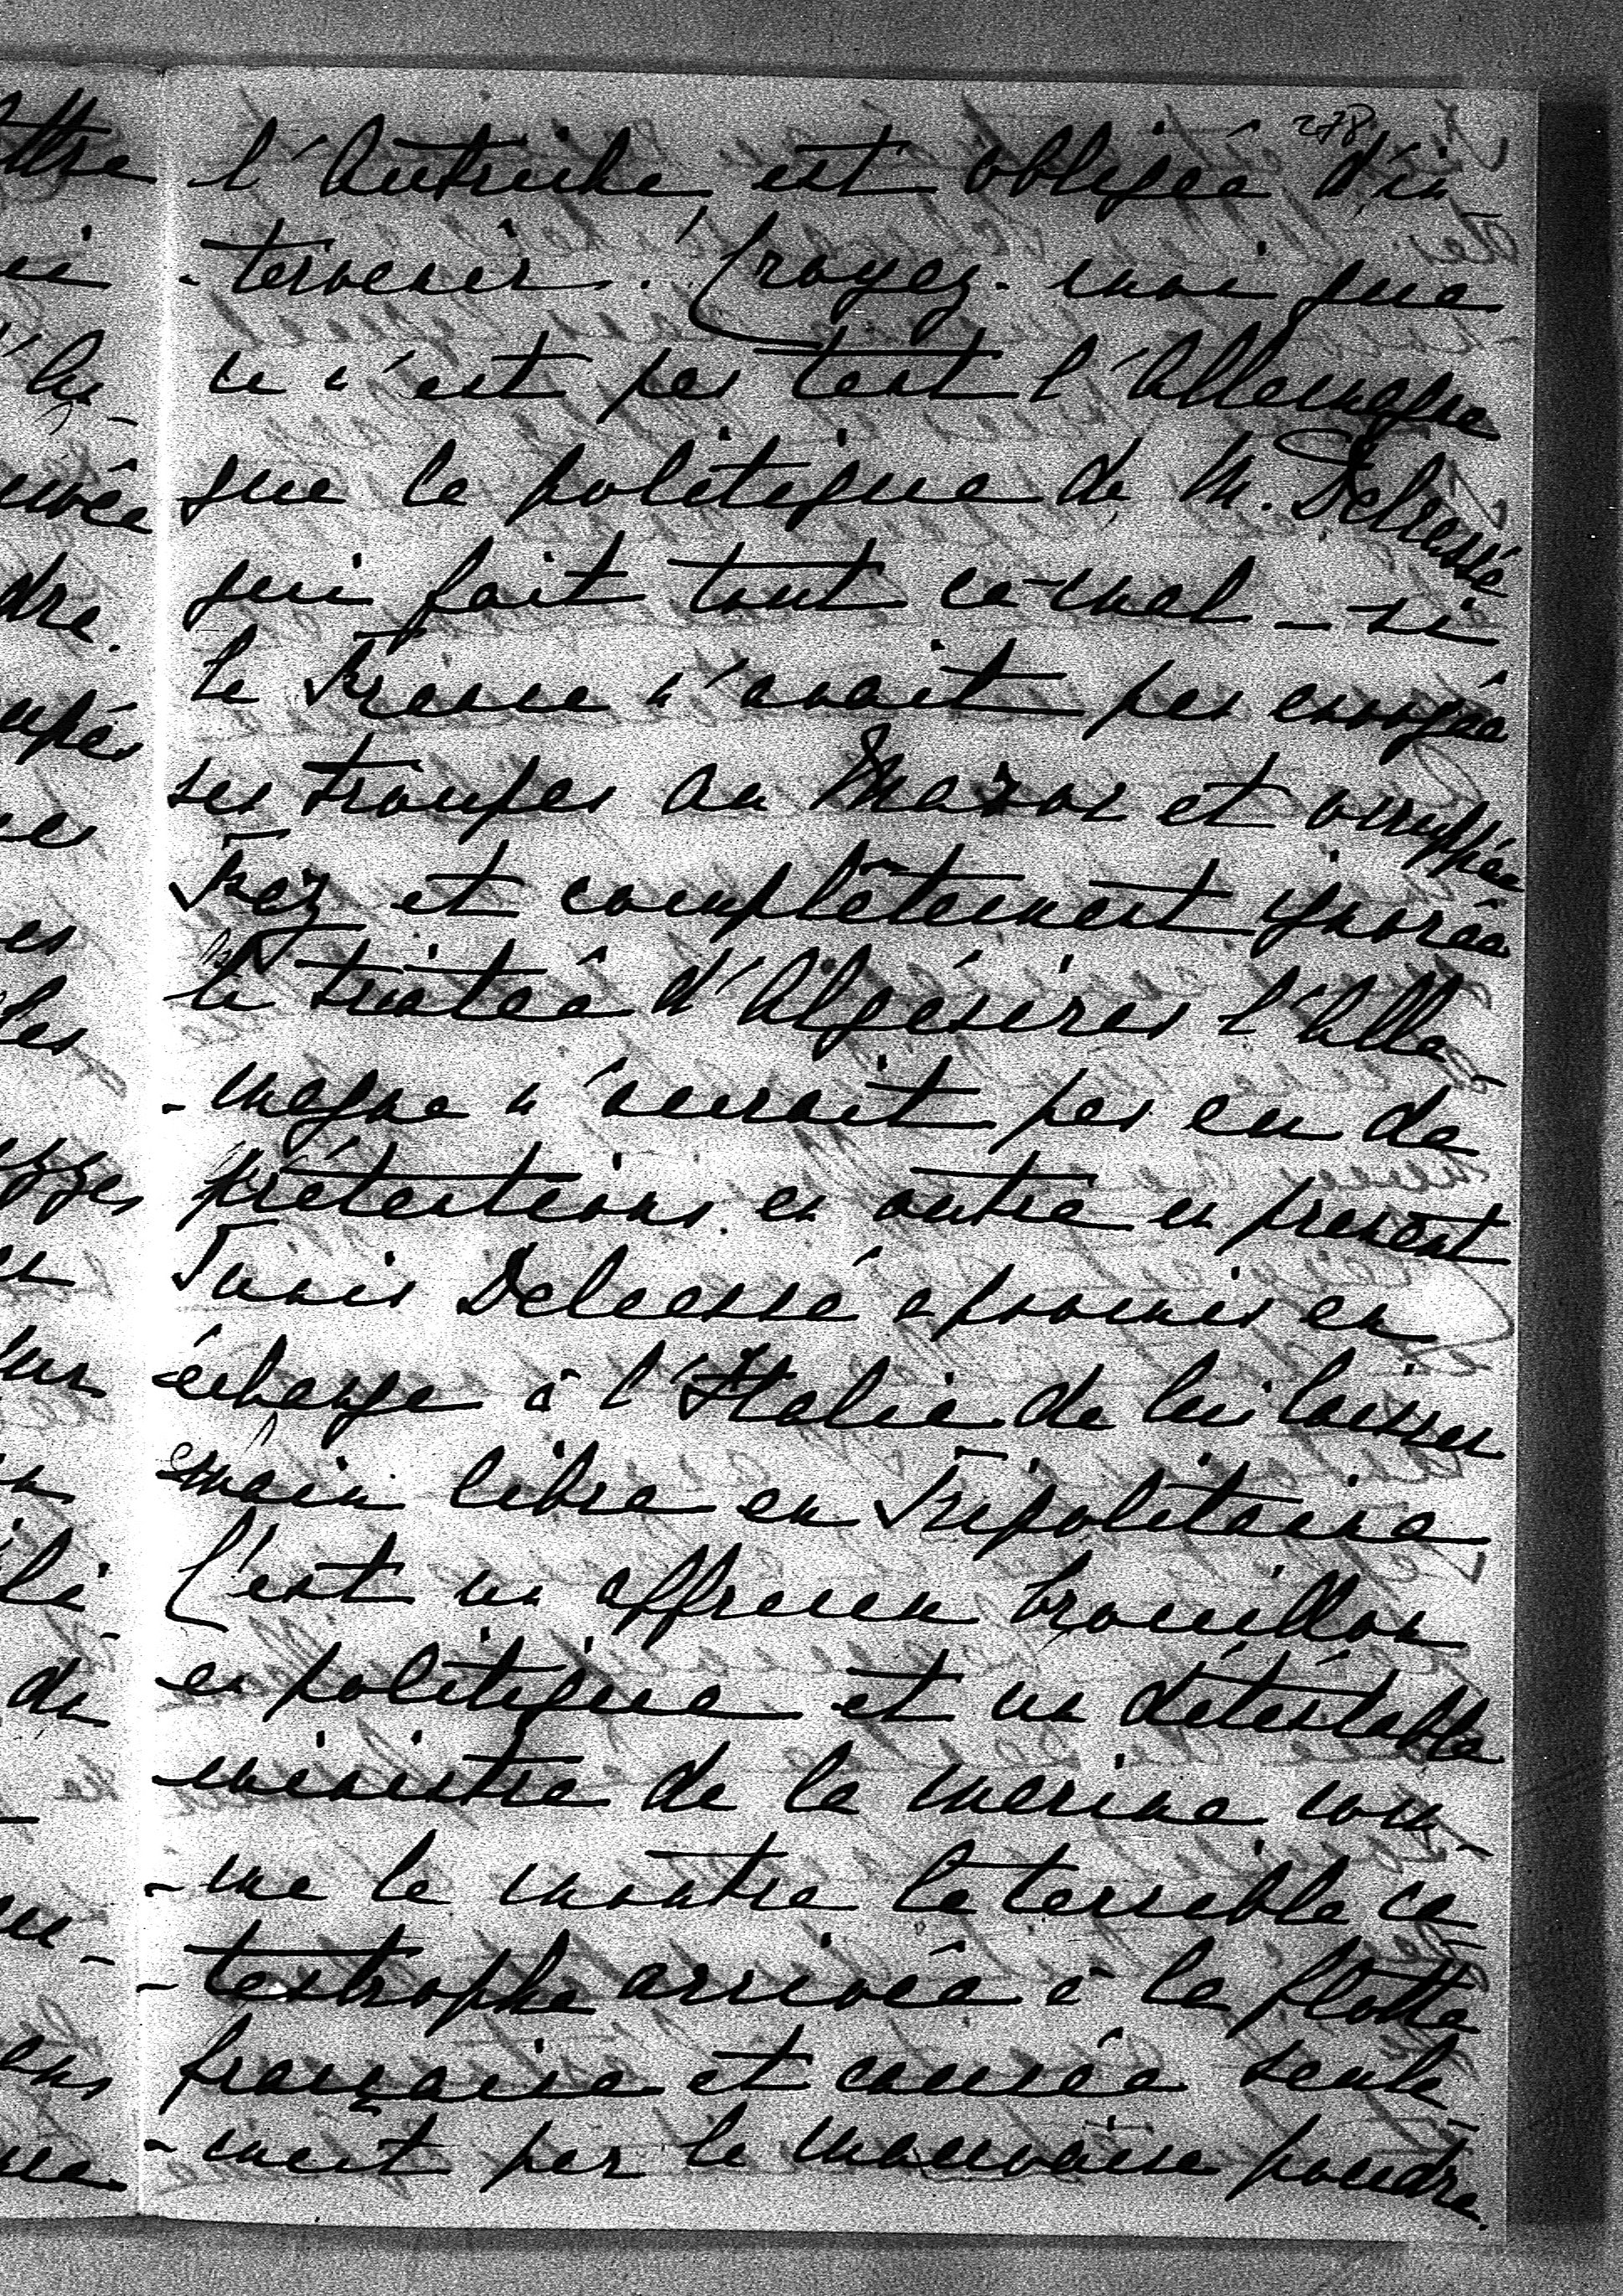 278
l'Autriche est obligée d'in-
-tervenir. Croyez-moi que
ce n'est pas tant l'Allemagne
que la politique de M. Delcassé
qui fait tout ce mal - si
la France n'avait pas envoyée
ses troupes au Maroc et occuppée
Fez et complêtement ignorée
le traitée d'Algésiras l'Alle-
-magne n'aurait pas eu de
prétentions en outre en prenant
Tunis Delcassé a promis en
échange à l'Italie de lui laisser
main libre en Tripolitaine
C'est un affreux brouillon
en politique et un détéstable
ministre de la marine com-
-me le montre la terrible ca-
-tastrophe arrivée à la flotte
française et causée seule-
-ment par la mauvaise poudre.